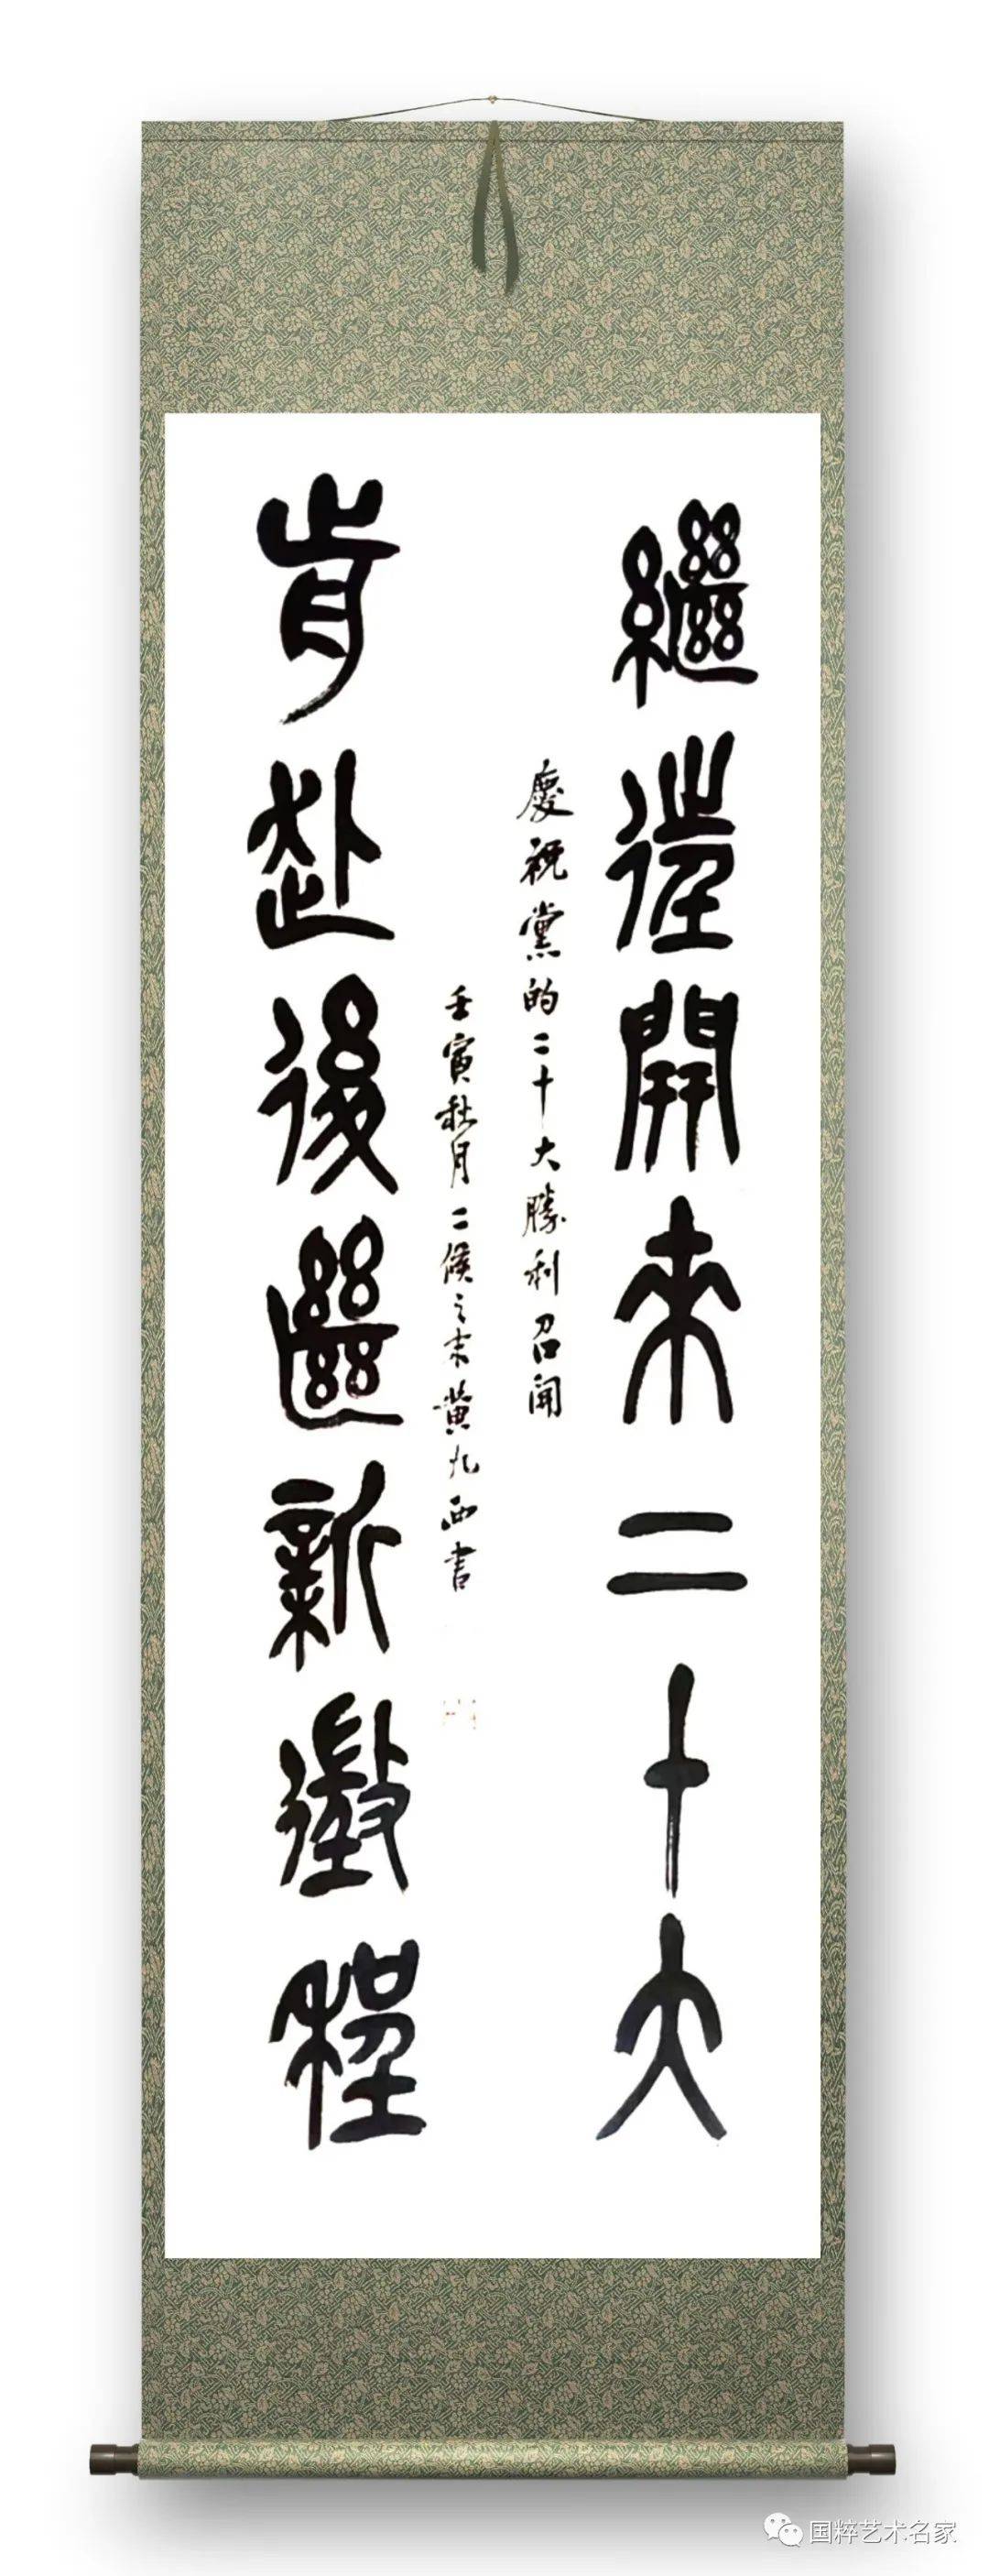 繼往開來二十大
慶祝黨的二十大勝利召開
壬寅秋月二候之末黃九西書
前赴後繼新徵程
国粹艺术名家